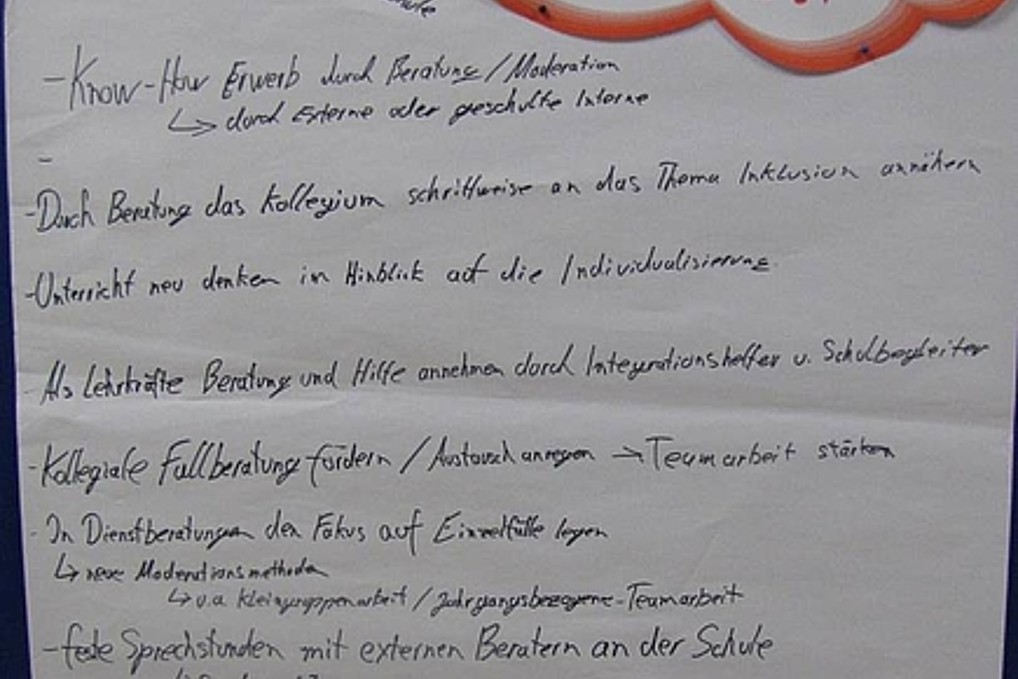 - Know-How Erwerb durch Beratung / Moderation
↳ durch Externe oder geschulte Interne
-
- Durch Beratung das Kollegium schrittweise an das Thema Inklusion annähern
- Unterricht neu denken im Hinblick auf die Individualisierung
- Als Lehrkräfte Beratung und Hilfe annehmen durch Integrationshelfer u. Schulbegleiter
- Kollegiale Fallberatung fördern / Austausch anregen → Teamarbeit stärken
- In Dienstberatungen den Fokus auf Einzelfälle legen
↳ neue Moderationsmethoden
↳ u.a. Kleingruppenarbeit / Jahrgangsbezogene-Teamarbeit
- feste Sprechstunden mit externen Beratern an der Schule